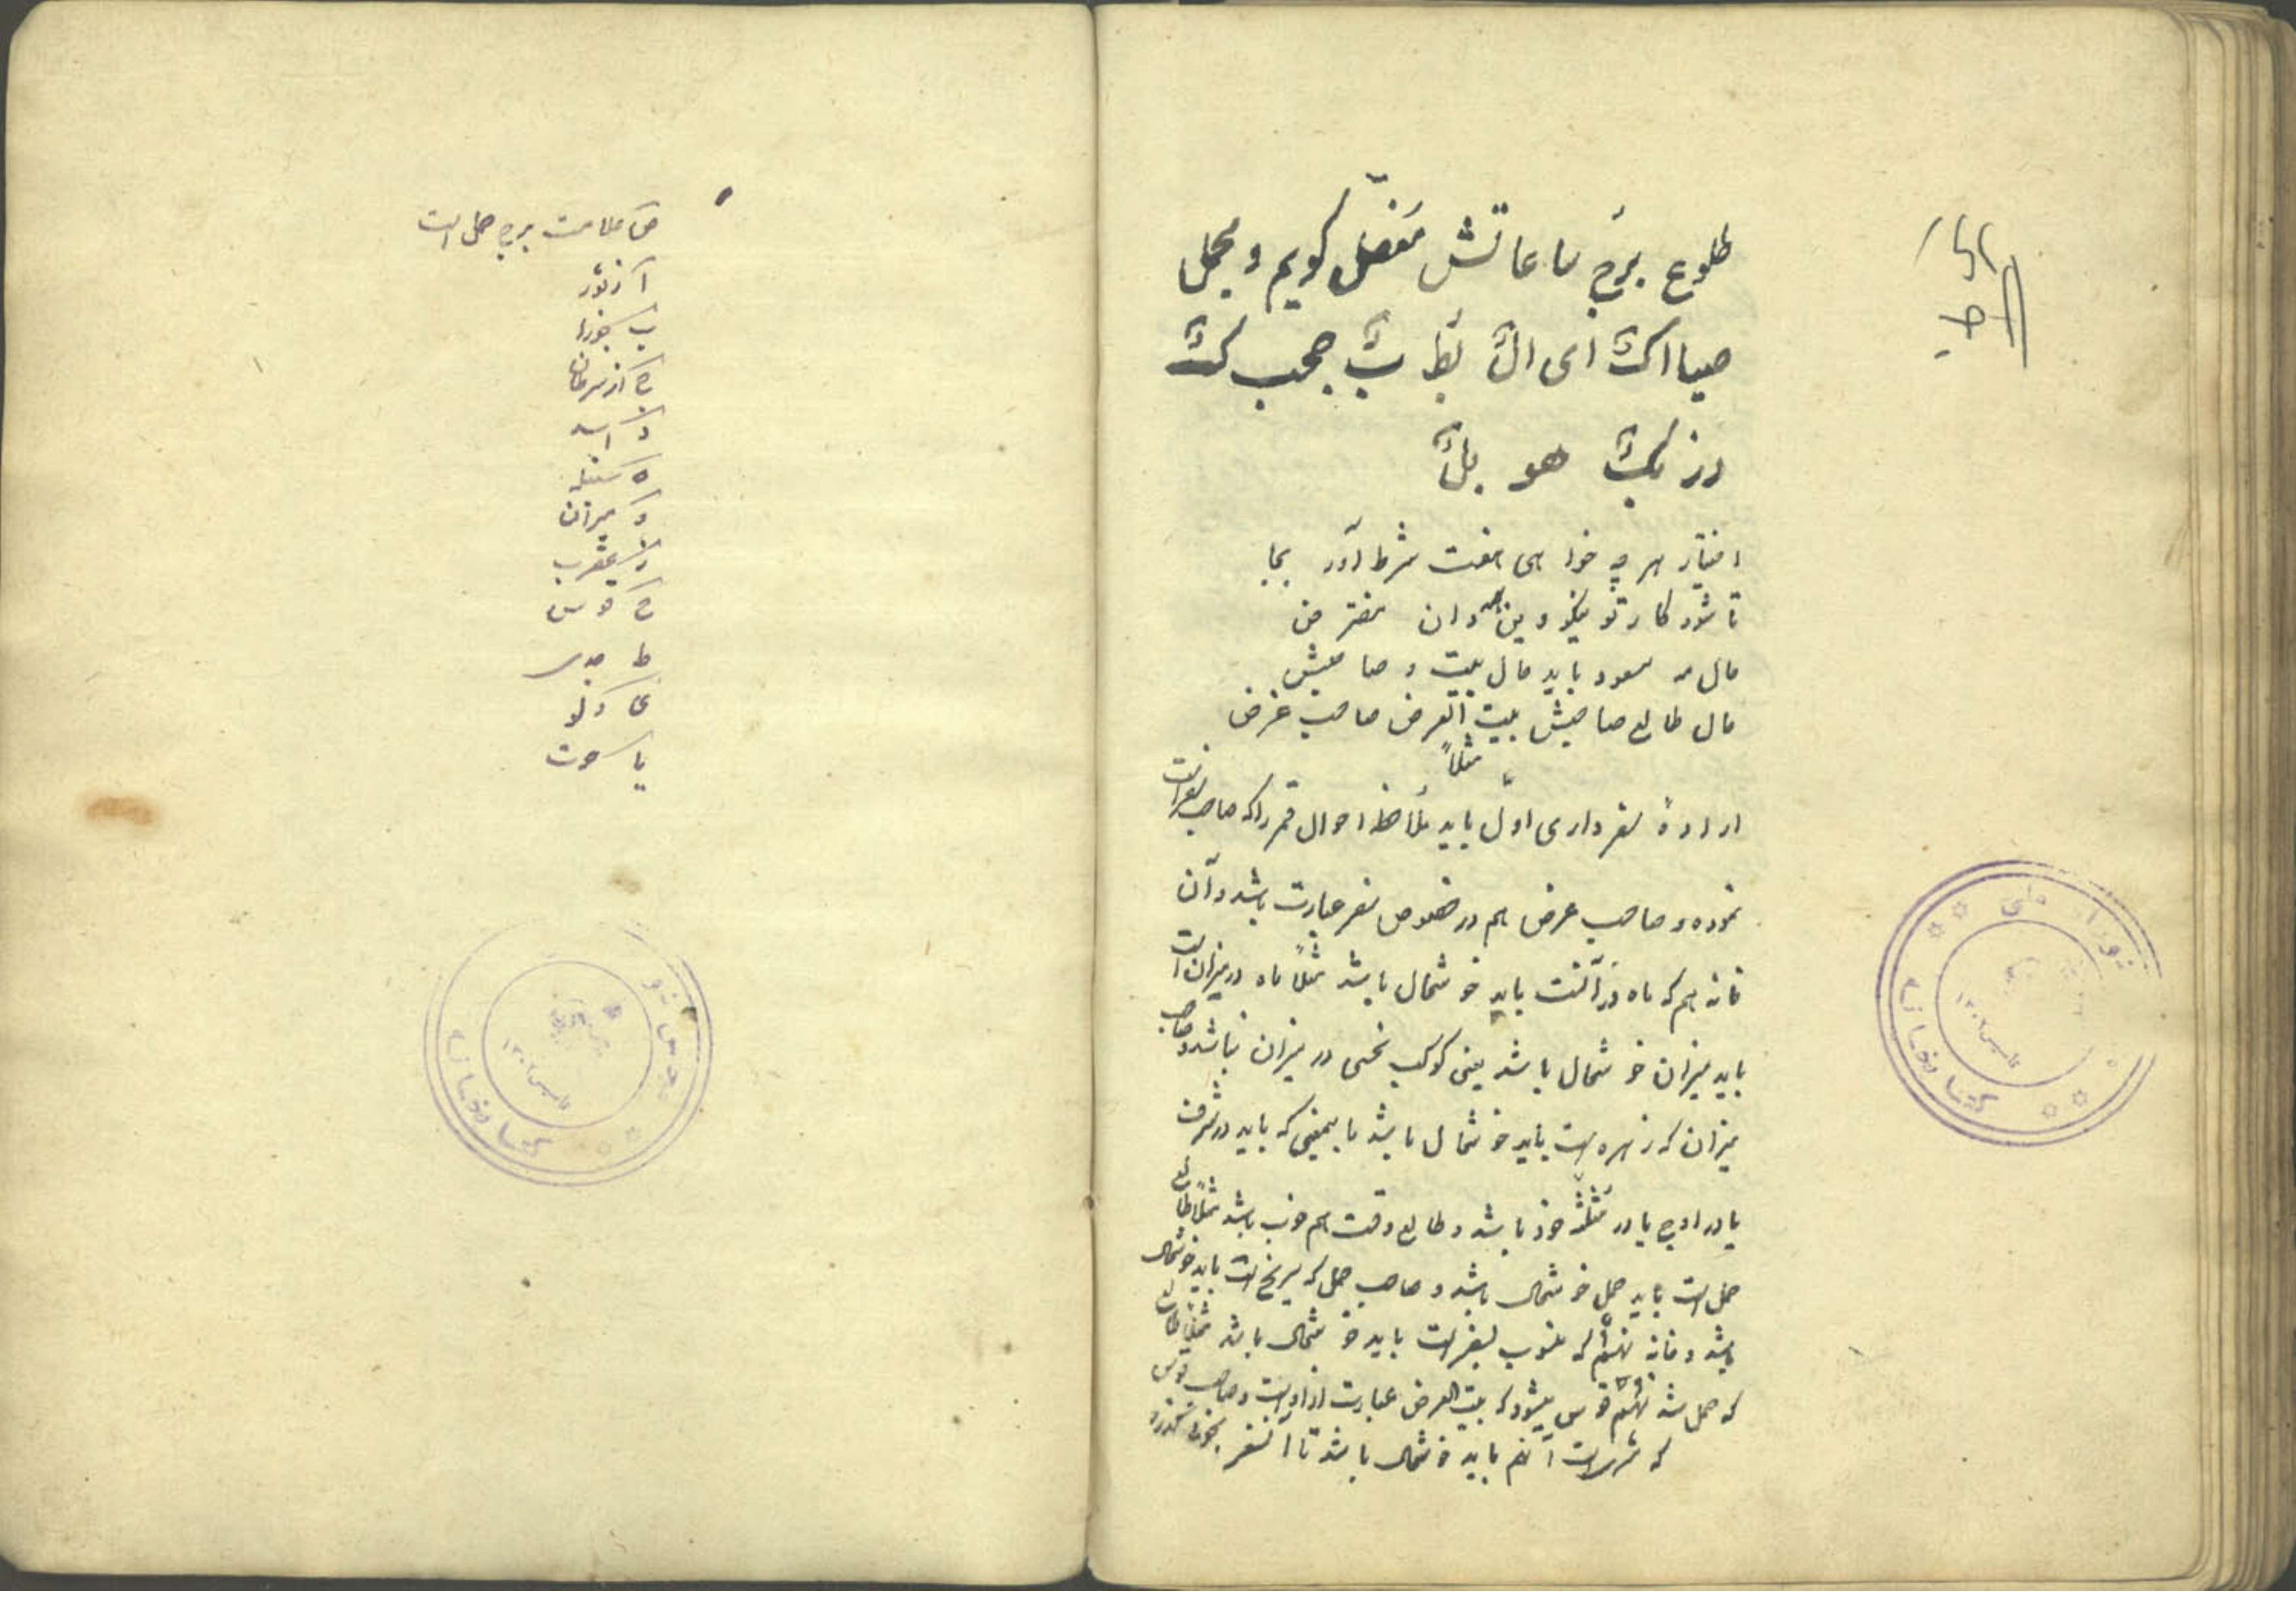 طلوع برج ساعاتش مفصّل کویم و مجمل
صیا اکث ای الث بط بث جحب کث
رز بکث هو بلث
اختیار هر چه خواهی هفت شرط آور بجا
تا شود کار تو نیکو و بین مفترض
حال مه مسعود باید حال بیت و صاحبش
حال طالع صاحبش بیت الغرض صاحب غرض
مثلاً
ارادهٔ سفر داری اوّل باید ملاحظه احوال قمر را که صاحب سفر است
نموده و صاحب غرض هم در خصوص سفر عبارت باشد و آن
خانه هم که ماه در آنست باید خوشحال باشد مثلاً ماه در میزان است
باید میزان خوشحال باشد یعنی کوکب نحسی در میزان نباشد و صاحب
میزان که زهره است باید خوشحال باشد باینمعنی که باید در شرف
یا در اوج یا در مثلثهٔ خود باشد و طالع وقت هم خوب باشد مثلاً طالع
حمل است باید حمل خوشحال باشد و صاحب حمل که مریخ است باید خوشحال
باشد و خانه نهم که منسوب بسفر است باید خوشحال باشد مثلاً طالع
که حمل شد نهم قوس میشود که بیت الغرض عبارت از اوست و صاحب قوس
که مشتریست آنهم باید خوشحال باشد تا آنسفر بخوبی بگذرد
ص علامت برج حمل است
آ از ثور
ب جوزا
ج از سرطان
د اسد
ه سنبله
و میزان
ز عقرب
ح قوس
ط جدی
ی دلو
یا حوت